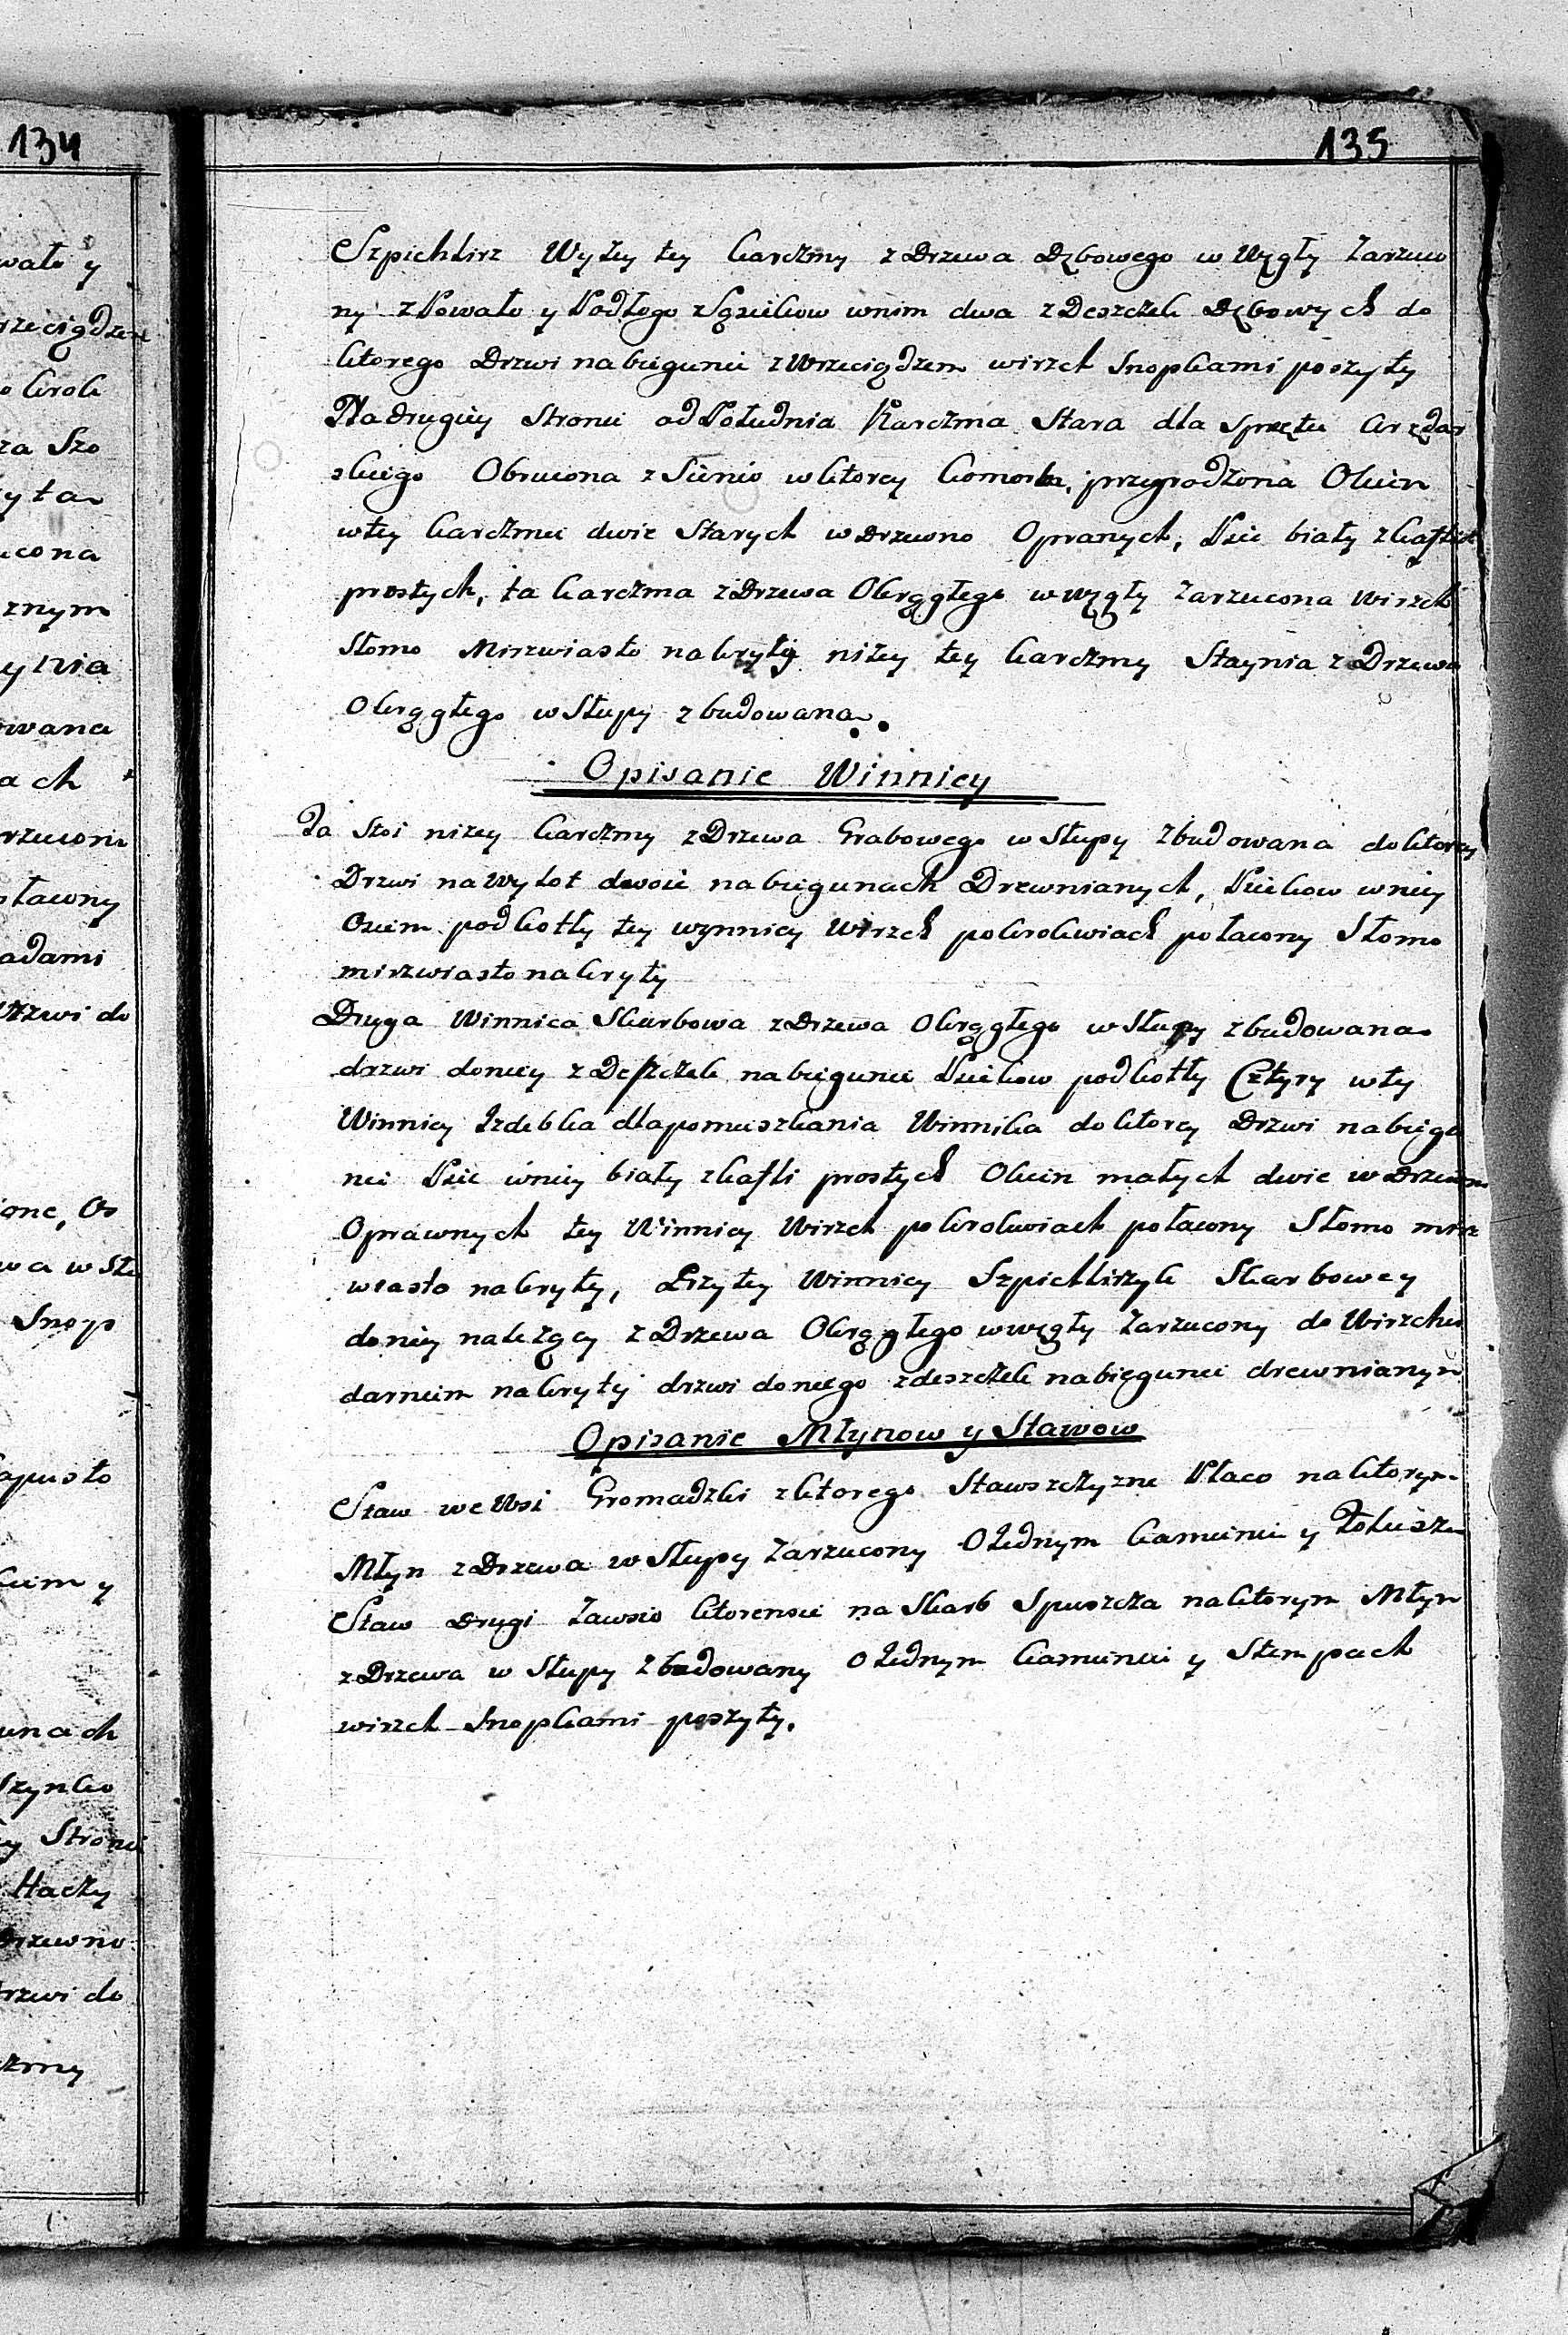 134
135
Szpichlirz Wyżey tey karczmy z Drzewa Dębowego w Węgły zarzuco
ny z Powało y Podłogo z Sąsiekow wnim dwa z Deszczek Dębowych do
ktorego Drzwi na biegunie z Wrzeciądzem wirzch Snopkami poszyty
Na drugiey Stronie od Południa Karczma Stara dla Sprzętu arędar
skiego Obrucona z Sienio w ktorey komorka, przegrodzona Okien
wtey karczmie dwie Starych w Drzewno Opranych, Piec biały z kafli
prostych, ta karczma z Drzewa Okrągłego w węgły zarzucona Wirzch
Słomo Mirzwiasto nakryty niżey tey karczmy Staynia z Drzewa
Okrągłego w Słupy zbudowana.
Opisanie Winnicy
Ta Stoi niżey karczmy z Drzewa Grabowego w Słupy Zbudowana do ktorey
Drzwi na wylot dwoie na biegunach Drewnianych, Piekow wniey
Osiem pod kotły tey wynnicy Wirzch po krokwiach połacony Słomo
mirzwiasto nakryty
Druga Winnica Skarbowa z Drzewa Okrągłego w Słupy zbudowana
drzwi doniey z Deszczek na biegunie Piekow pod kotły Cztyry wty
Winnicy Izdebka dla pomieszkania Winnika do ktorey Drzwi na biegu
nie Piec wniey biały z kafli prostych Okien małych dwie w Drzewno
Oprawnych tey Winnicy Wirzch po krokwiach połacony Słomo mirz
wiasto nakryty, Przytey Winnicy Szpichlirzyk Skarbowey
doniey należący z Drzewa Okrągłego w węgły zarzucony do Wirzchu
darniem nakryty drzwi doniego z deszczek na biegunie drewnianym
Opisanie Młynow y Stawow
Staw we Wsi Gromadzki z ktorego Stawszczyzne Płaco na ktorym
Młyn z Drzewa w Słupy zarzucony O Iednym kamieniu y
Staw Drugi zawsio ktorensie na Skarb Spuszcza na ktorym Młyn
z Drzewa w Słupy zbudowany O Iednym kamieniu y Stempach
wirzch Snopkami poszyty.